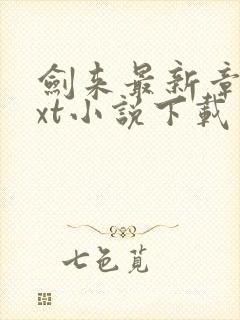 劍来最新章
xt小說下載
七色覓